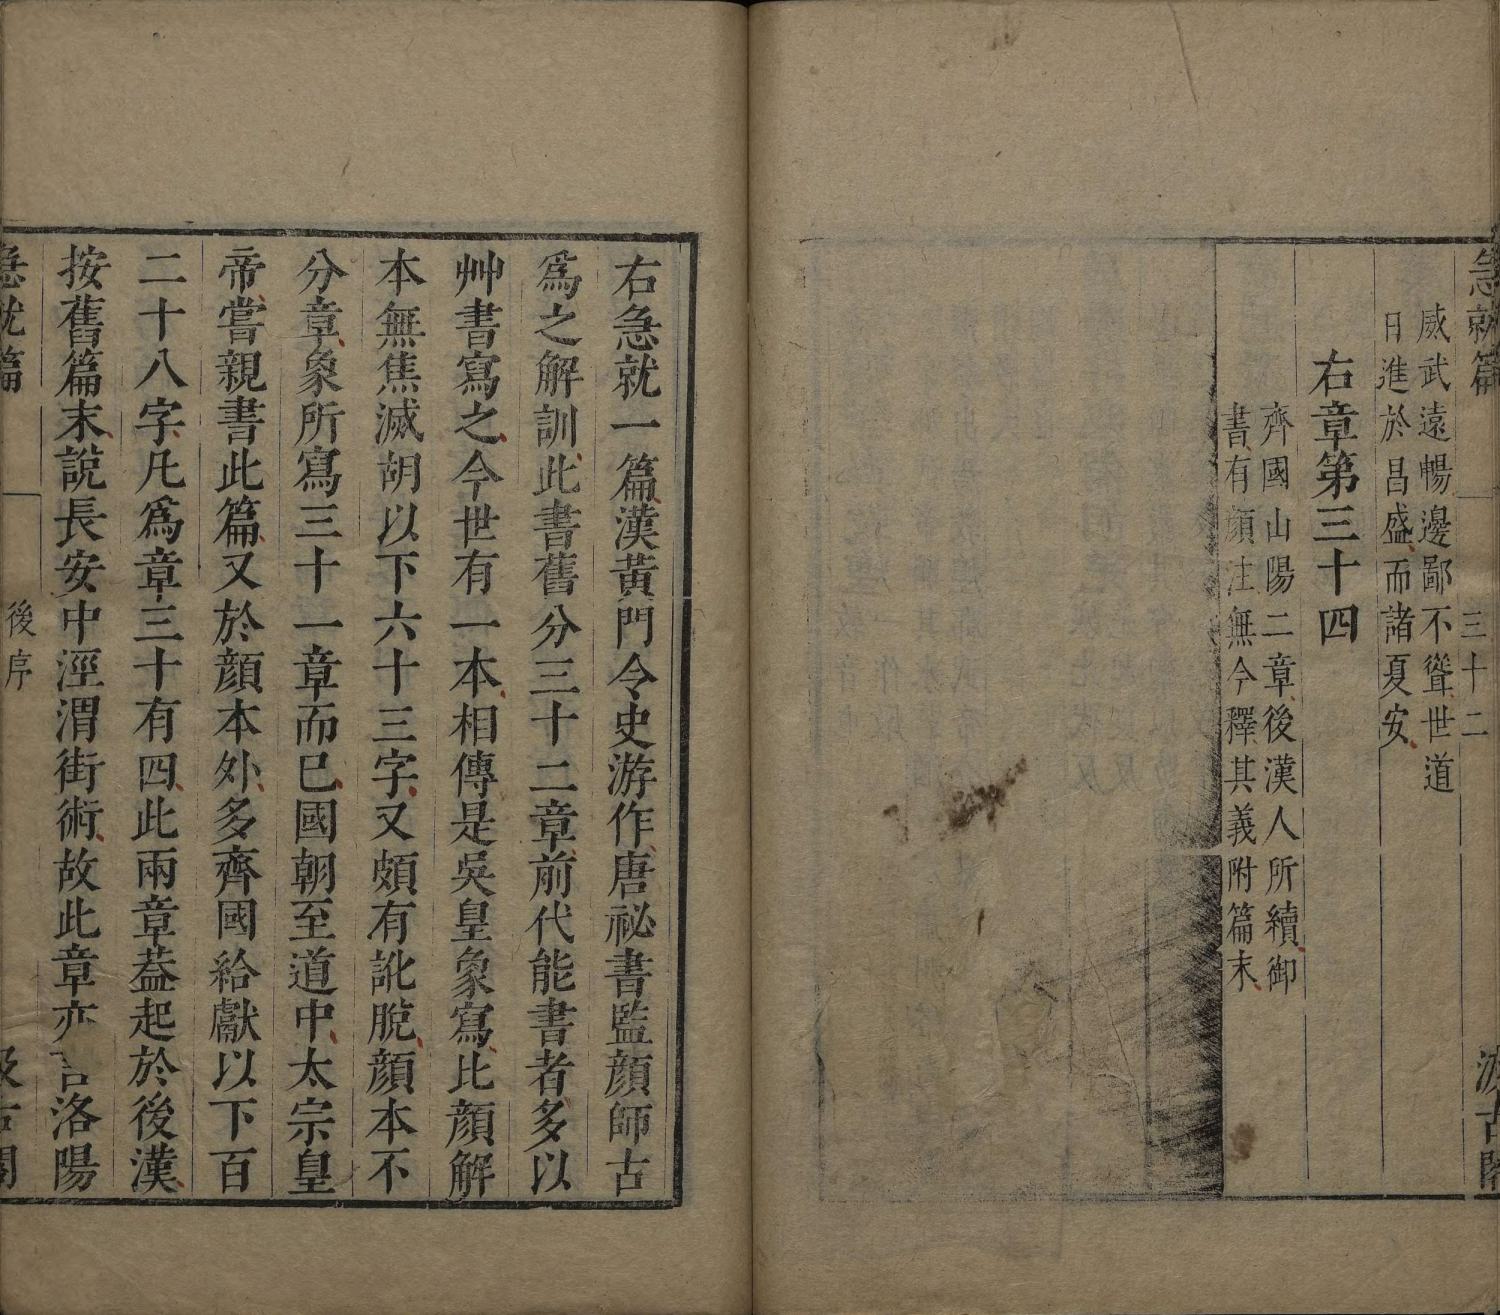 急就篇 三十二 汲古閣
威武遠暢邊鄙不聳世道
日進於昌盛而諸夏安
右章第三十四
齊國山陽二章後漢人所續御
書有顔注無今釋其義附篇末
右急就一篇漢黃門令史游作唐祕書監顔師古
爲之解訓此書舊分三十二章前代能書者多以
艸書寫之今世有一本相傳是吳皇象寫比顔解
本無焦滅胡以下六十三字又頗有訛脫顔本不
分章象所寫三十一章而已國朝至道中太宗皇
帝嘗親書此篇又於顔本外多齊國給獻以下百
二十八字凡爲章三十有四此兩章葢起於後漢
按舊篇末說長安中涇渭街術故此章亦言洛陽
急就篇 後序 汲古閣